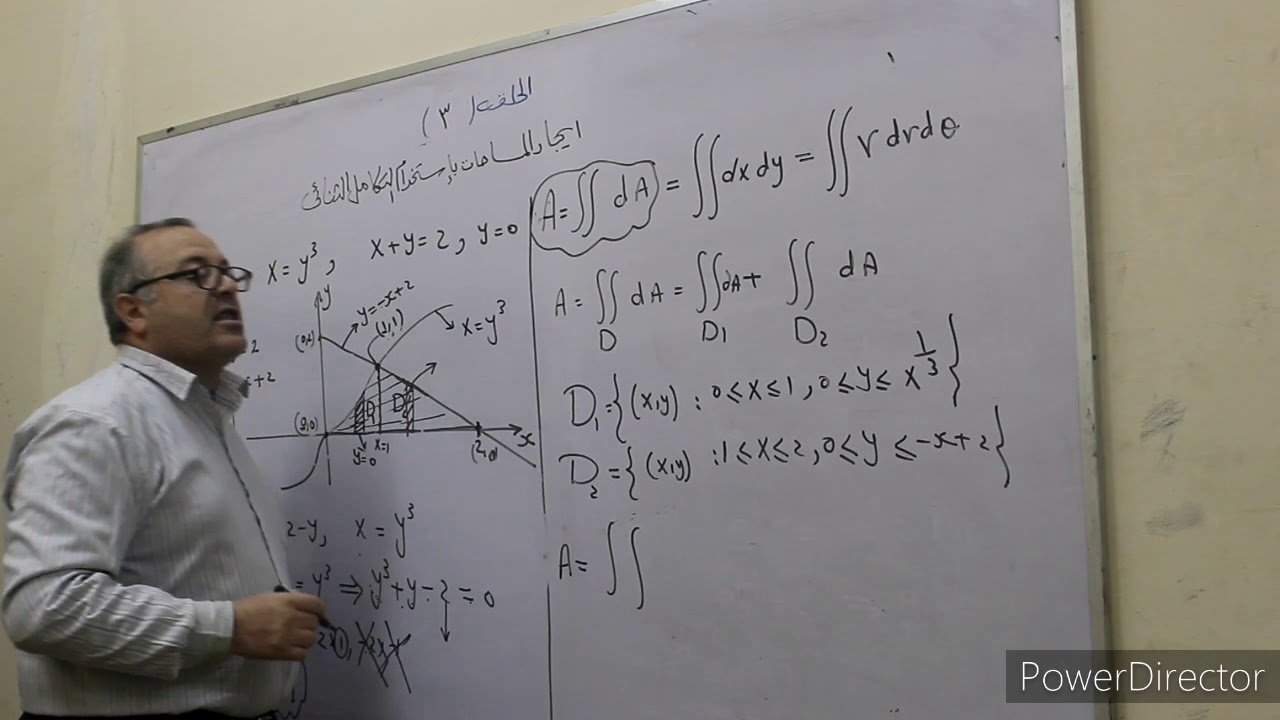 الحلقة (٣)
ايجاد المساحات بإستخدام التكامل الثنائي
x = y³, x + y = 2, y = 0
y
y = -x + 2
(0,2)
(1,1)
x = y³
2
x + 2
D₁
D₂
(0,0)
y = 0
x = 1
(2,0)
x
2 - y, x = y³
= y³ ⇒ y³ + y - 2 = 0
A = ∬ dA = ∬ dx dy = ∬ r dr dθ
A = ∬ dA = ∬ dA + ∬ dA
D D₁ D₂
D₁ = {(x,y) : 0 ≤ x ≤ 1, 0 ≤ y ≤ x^(1/3)}
D₂ = {(x,y) : 1 ≤ x ≤ 2, 0 ≤ y ≤ -x + 2}
A = ∬
PowerDirector